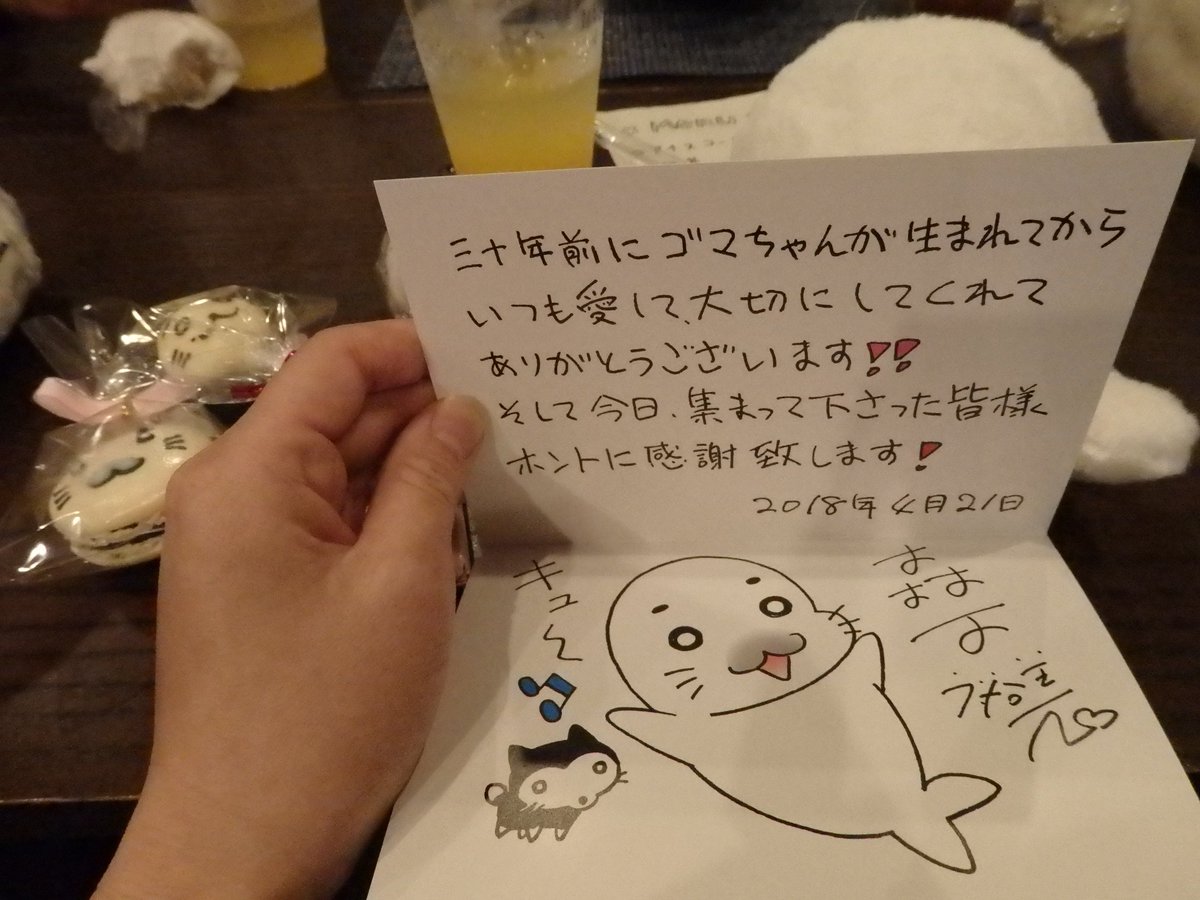 三十年前にゴマちゃんが生まれてから
いつも愛して、大切にしてくれて
ありがとうございます!!
そして今日、集まって下さった皆様
ホントに感謝致します!
2018年4月21日
キュ〜